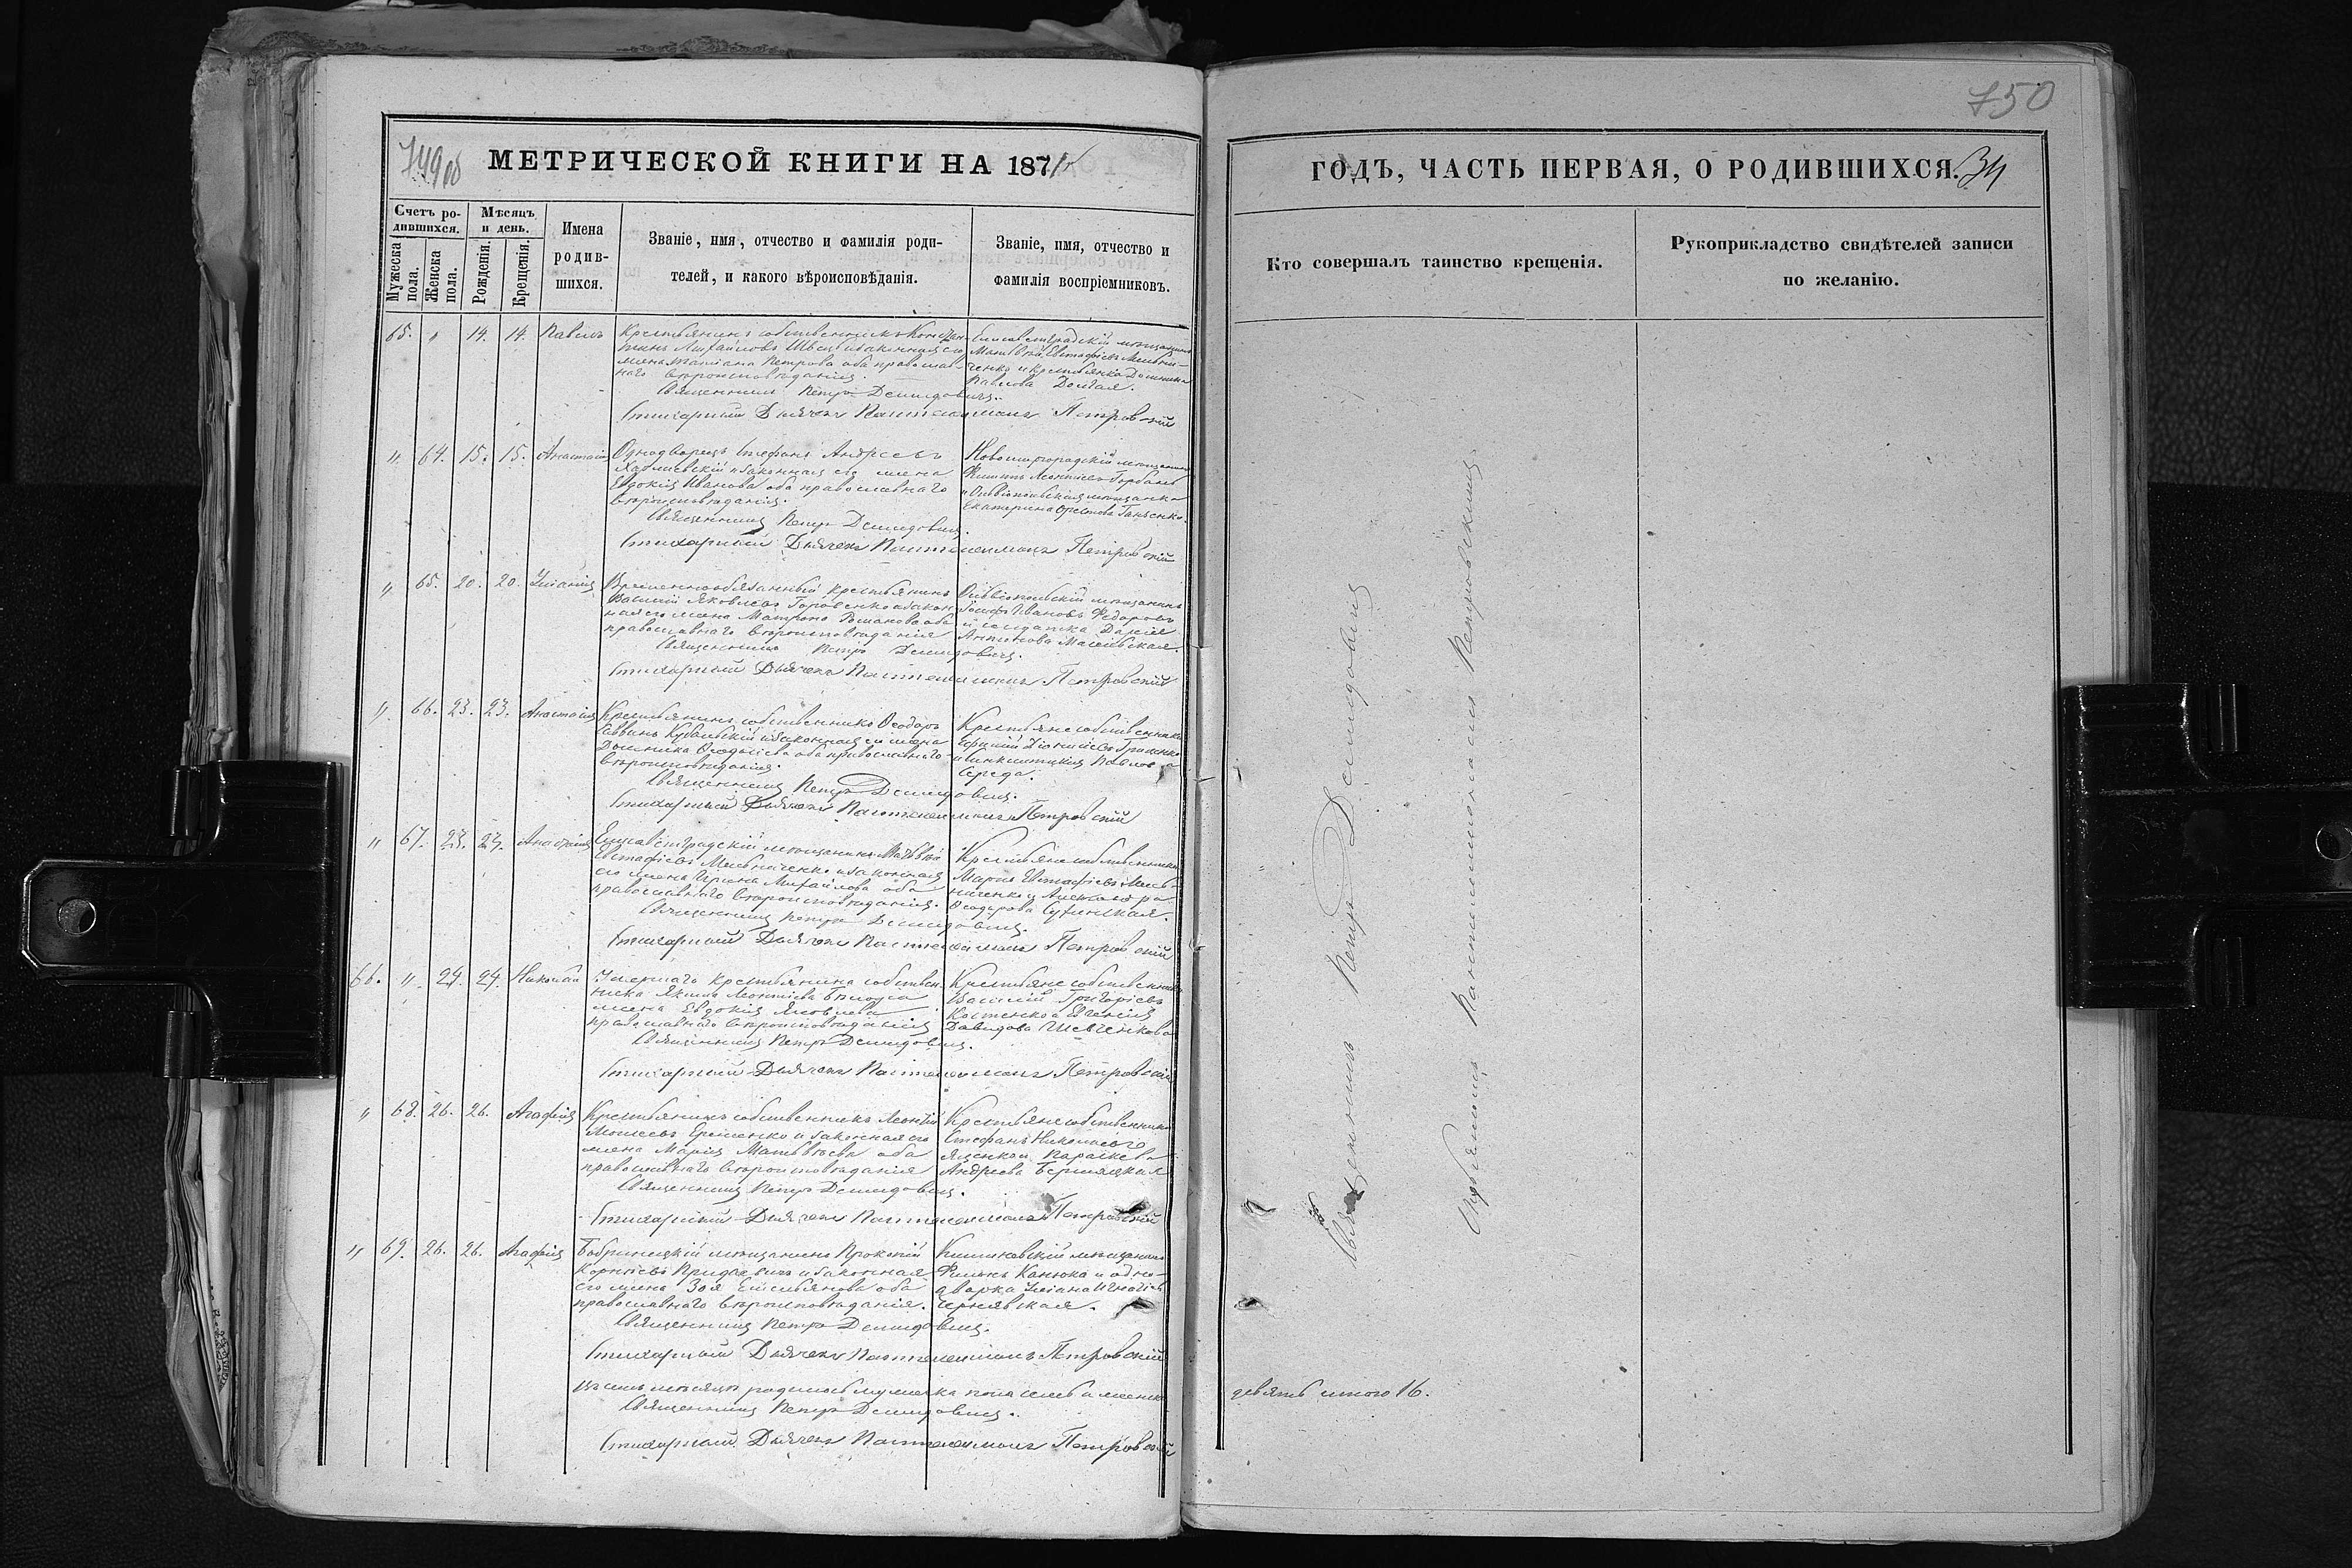 749об
МЕТРИЧЕСКОЙ КНИГИ НА 1871
Счетъ ро-
дившихся.
Мужеска пола.
Женска пола.
Мѣсяцъ
и день.
Рожденія.
Крещенія.
Имена
родив-
шихся.
Званіе, имя, отчество и фамилія роди-
телей, и какого вѣроисповѣданія.
Званіе, имя, отчество и
фамилія воспріемниковъ.
65. 14. 14. Павелъ
Крестьянинъ собственникъ
Михайловъ Швецъ и законная его
жена Татіана Петрова оба православ-
наго вѣроисповѣданія
Елисаветградскій мѣщанинъ
Матвѣй Евстафіевъ Мельни-
ченко и крестьянка Домникія
Павлова
Священникъ Петръ Демидовичъ.
Стихарный Дьячекъ Пантелеимонъ Петровскій
" 64. 15. 15. Анастасія
Однодворецъ Стефанъ Андреевъ
и законная его жена
Евдокія Иванова оба православнаго
вѣроисповѣданія.
Новомиргородскій мѣщанинъ
Филиппъ Леонтіевъ Горбань
и Ольвіопольская мѣщанка
Екатерина
Священникъ Петръ Демидовичъ.
Стихарный Дьячекъ Пантелеимонъ Петровскій
" 65. 20. 20. Уліанія
Временнообязанный крестьянинъ
Василій Яковлевъ и закон-
ная его жена Матрона Романова оба
православнаго вѣроисповѣданія
Ольвіопольскій мѣщанинъ
Іосифъ Ивановъ Федоровъ
и солдатка Дарія
Антонова
Священникъ Петръ Демидовичъ.
Стихарный Дьячекъ Пантелеимонъ Петровскій
" 66. 23. 23. Анастасія
Крестьянинъ собственникъ Ѳеодоръ
Саввинъ Кубальскій и законная его жена
Домникія Ѳеодосіева оба православнаго
вѣроисповѣданія.
Крестьяне собственники
Павлова
Середа.
Священникъ Петръ Демидовичъ.
Стихарный Дьячекъ Пантелеимонъ Петровскій
" 67. 23. 23. Анастасія
Елисаветградскій мѣщанинъ Матвѣй
Евстафіевъ Мельниченко и законная
его жена Ирина Михайлова оба
православнаго вѣроисповѣданія.
Крестьяне собственники
Маркъ Евстафіевъ Мель-
ниченко и Александра
Ѳеодорова
Священникъ Петръ Демидовичъ.
Стихарный Дьячекъ Пантелеимонъ Петровскій
66. " 24. 24. Николай
Умершаго крестьянина собствен-
ника Якима Леонтіева
жена Евдокія Яковлева
православнаго вѣроисповѣданія
Крестьяне собственники
Василій Григоріевъ
Костенко и Евгенія
Давидова Шевченкова
Священникъ Петръ Демидовичъ.
Стихарный Дьячекъ Пантелеимонъ Петровскій
" 68. 26. 26. Агафія
Крестьянинъ собственникъ Леонтій
Моисеевъ Еременко и законная его
жена Марія Матвѣева оба
православнаго вѣроисповѣданія
Крестьяне собственники
Стефанъ Николаевъ
Яценко и Параскева
Андреева
Священникъ Петръ Демидовичъ.
Стихарный Дьячекъ Пантелеимонъ Петровскій
" 69. 26. 26. Агафія
Бобринецкій мѣщанинъ Прокопій
Корнѣевъ и законная
его жена Зоя Емельянова оба
православнаго вѣроисповѣданія.
Кишиневскій мѣщанинъ
Филипъ Канюка и одно-
дворка Уліана Игнатіева
Чернявская.
Священникъ Петръ Демидовичъ.
Стихарный Дьячекъ Пантелеимонъ Петровскій
Въ семъ мѣсяцѣ родилось мужеска пола семь и женска
Священникъ Петръ Демидовичъ.
Стихарный Дьячекъ Пантелеимонъ Петровскій
750
ГОДЪ, ЧАСТЬ ПЕРВАЯ, О РОДИВШИХСЯ. 34
Кто совершалъ таинство крещенія.
Рукоприкладство свидѣтелей записи
по желанію.
Священникъ Петръ Демидовичъ
Пантелеимономъ Петровскимъ.
девять итого 16.